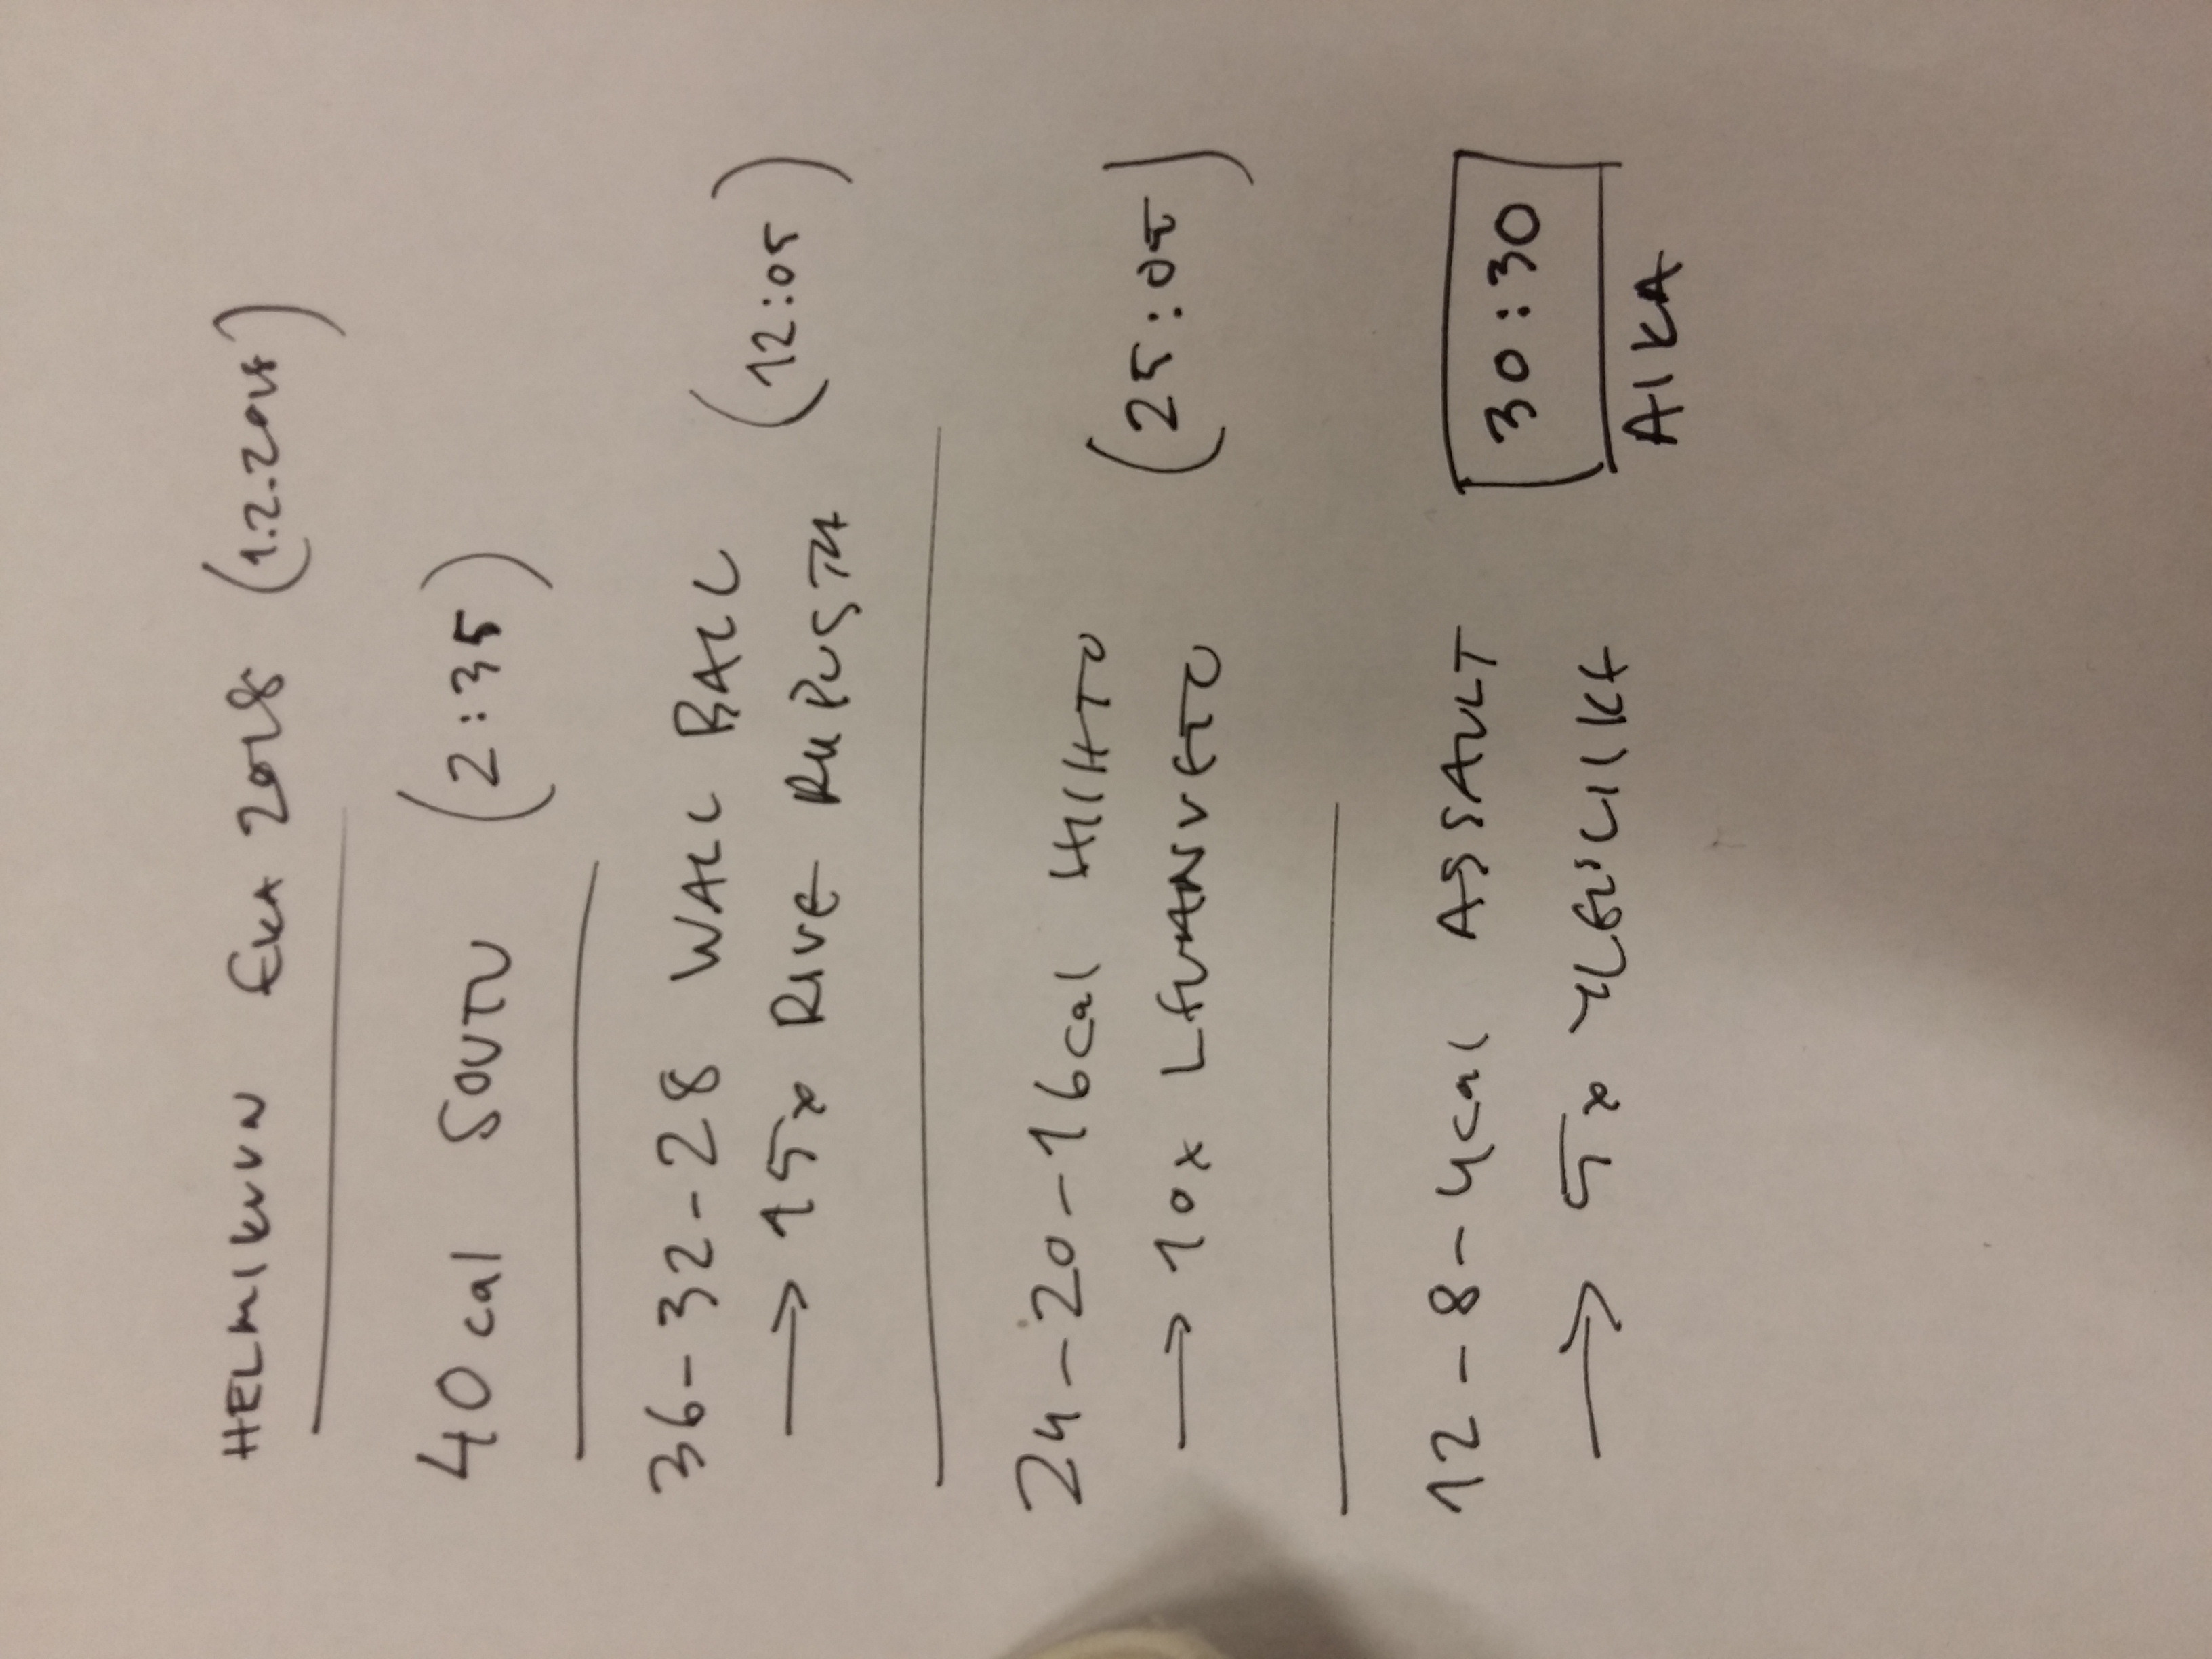 HELMIKUUN EKA 2018 (1.2.2018)
40 cal SOUTU (2:35)
36-32-28 WALL BALL
→ 15x RIVE RIIPUSTA (12:05)
24-20-16cal HIIHTO
→ 10x LEUANVETO (25:05)
12-8-4cal ASSAULT 30:30
→ 5x YLEUSLIIKE AIKA